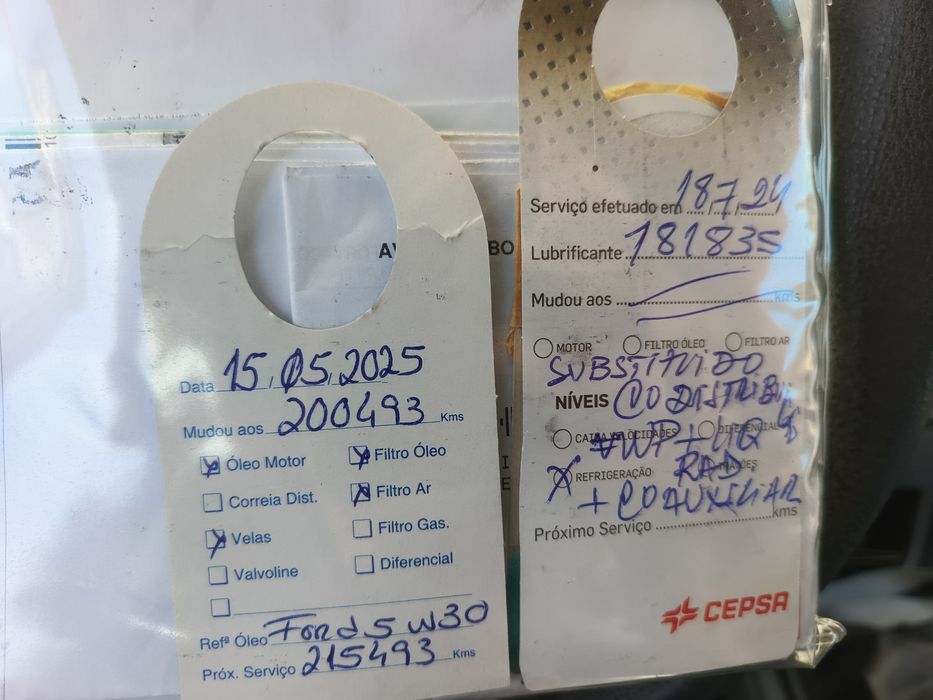 AV
BO
Data 15,05,2025
Mudou aos 200493 Kms
Óleo Motor
Filtro Óleo
Correia Dist.
Filtro Ar
Velas
Filtro Gas.
Valvoline
Diferencial
Refª Óleo Ford 5 W30
Próx. Serviço 215493 Kms
Serviço efetuado em 18,7,24
Lubrificante 181835
Mudou aos kms
MOTOR FILTRO ÓLEO FILTRO AR
SUBSTITUIDO
NÍVEIS CO DISTRIBUI
CAIXA VELOCIDADES DIFERENCIAL
WP + LIQ
REFRIGERAÇÃO RAD.
+ CO AUXILIAR
Próximo Serviço kms
CEPSA